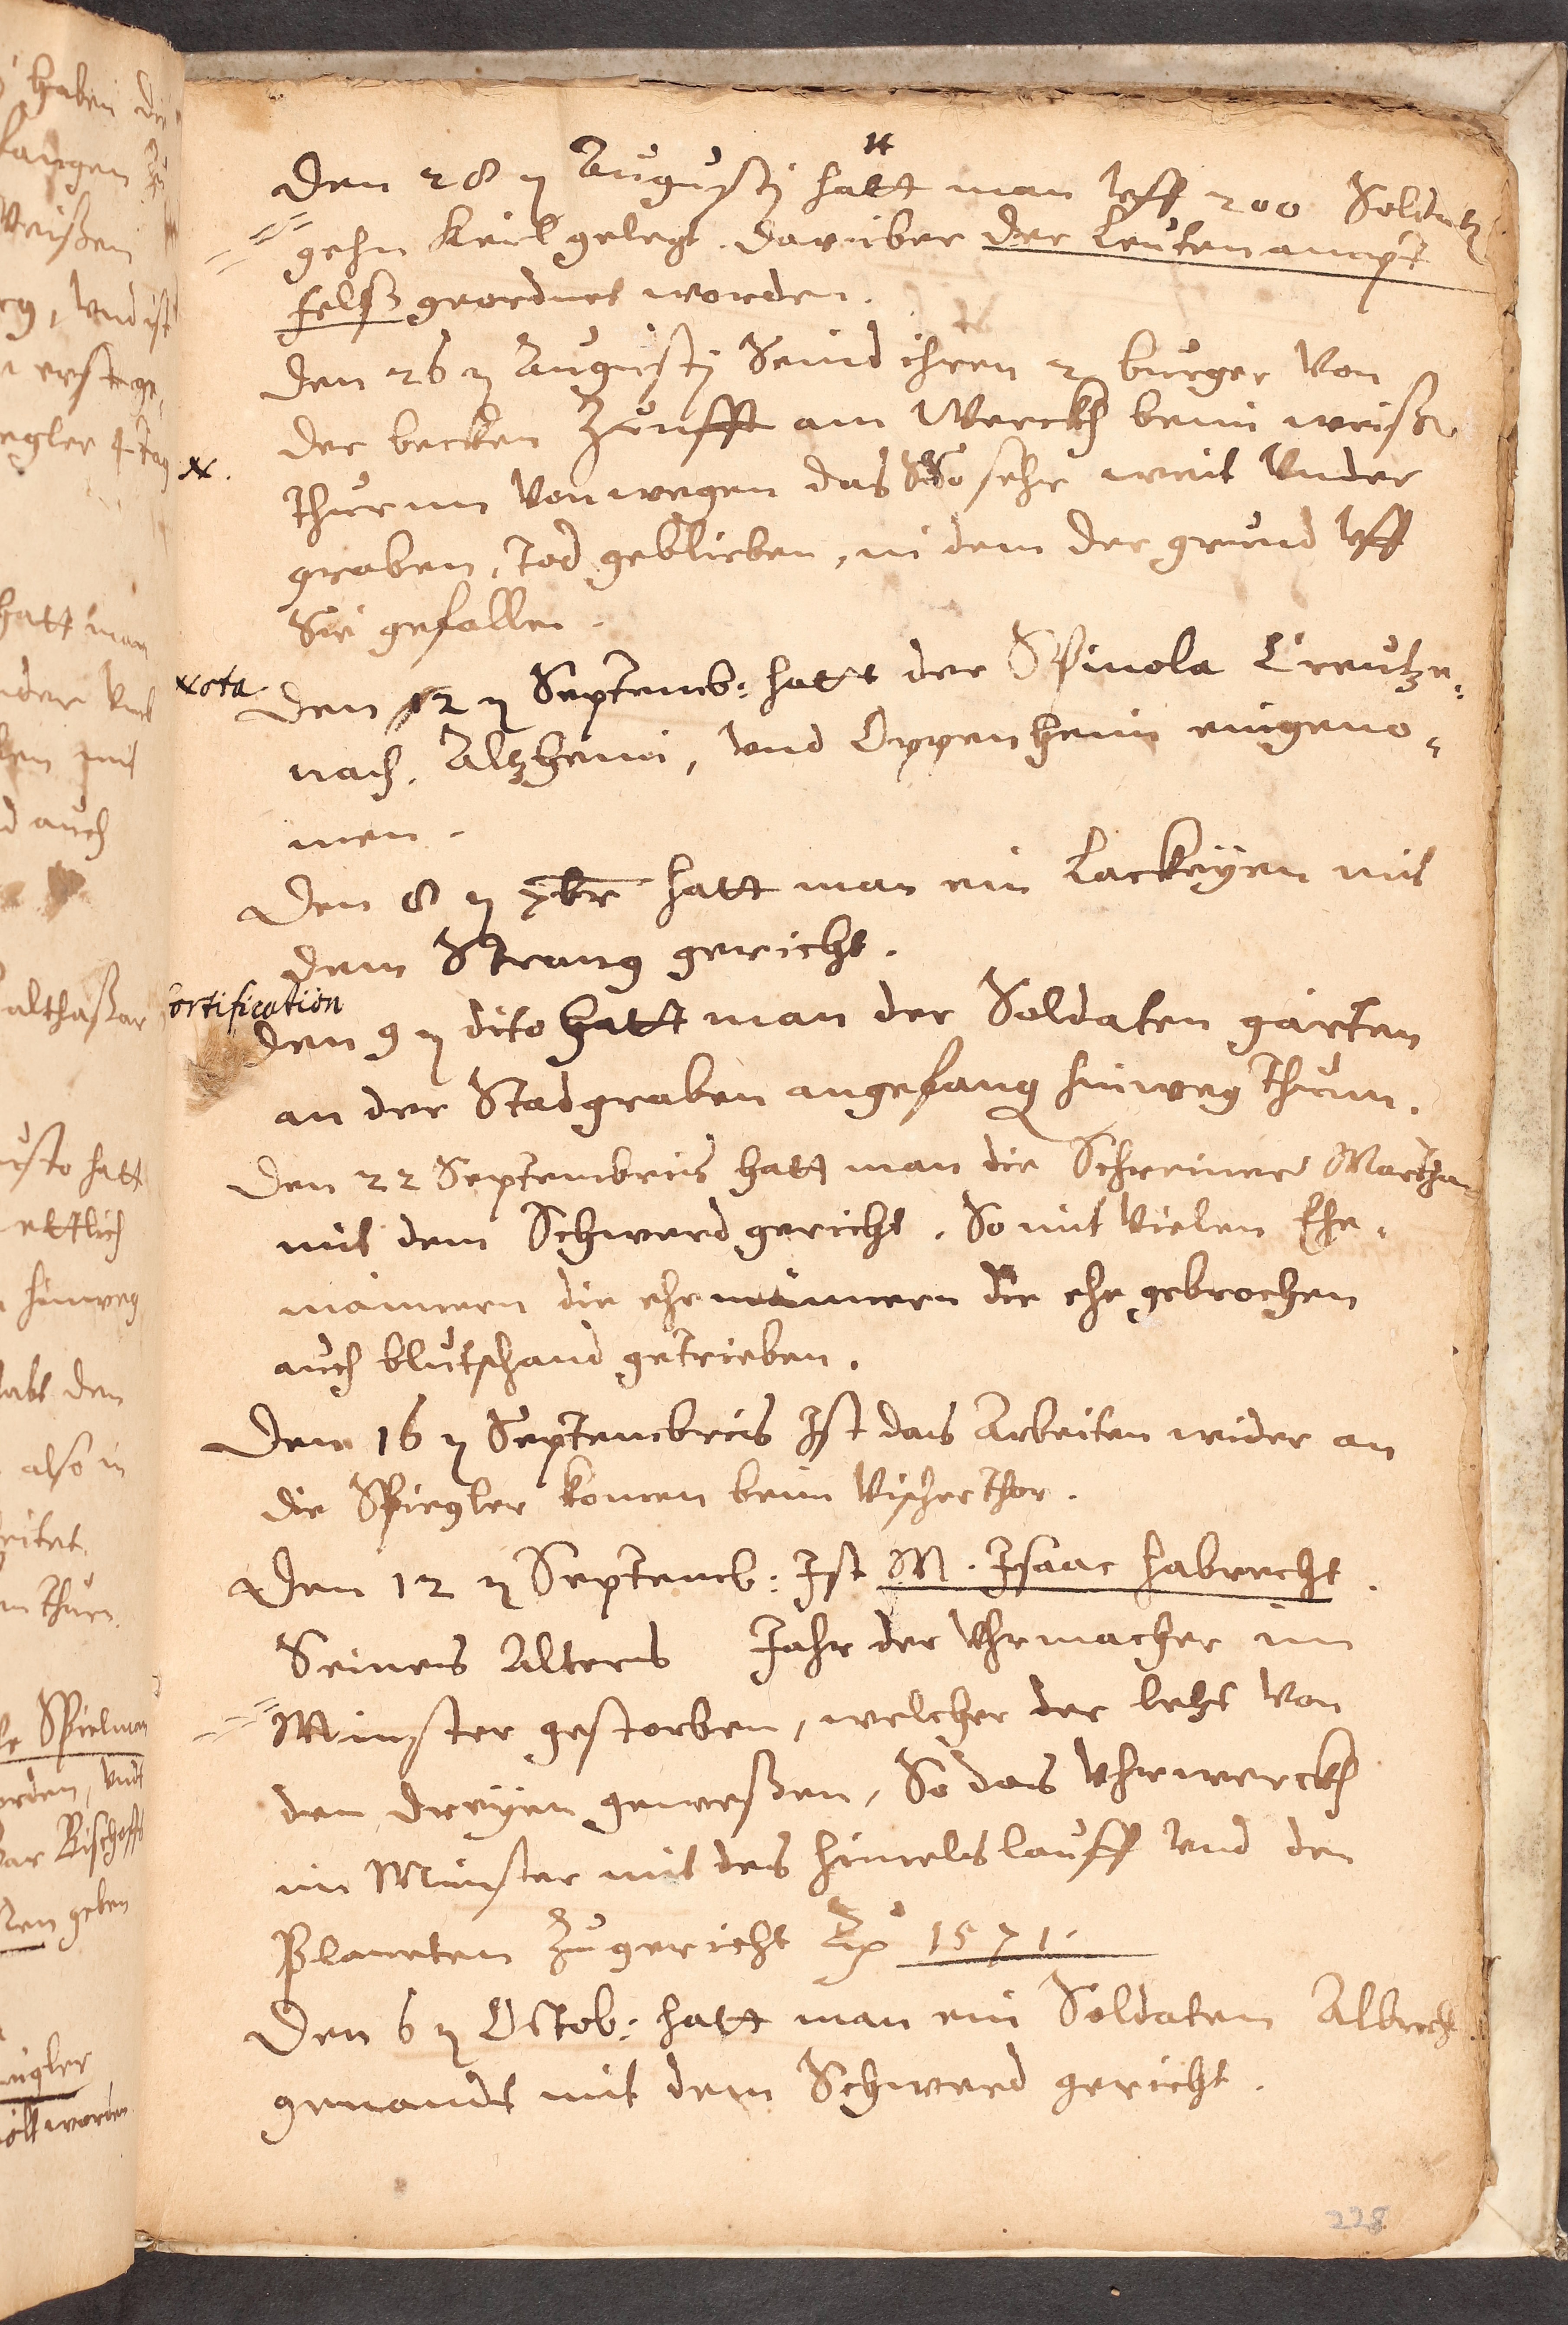 Den 28 n Augustj hatt man vff 200 Soldaten
gehn Keil gelegt. Darüber der Leutenampt
Felß geordnet worden.
Den 26 n Augustj Seind ihren 2 burger von
der becken Zunfft am Werckh beim weißen
N.
thurnn von wegen das So sehr weit vnder
graben, tod geblieben, in dem der grund vff
Sie gefallen.
Nota.
Den 12 n Septemb: hatt der Spinola Creutze-
nach, Altzheim, vnd Oppenheim eingeno-
men.
Den 8 n 7br hatt man ein Lackeyen mit
dem Strang gericht.
fortification
Den 9 n dito hatt man der Soldaten gärten
an der Stadgraben angefang hinweg thun.
Den 22 Septembris hatt man die Schreiner Martha
mit dem Schwerd gericht. So mit vielen Ehe-
männern die ehe männern die ehe gebrochen
auch blutschand getrieben.
Den 16 n Septembris Ist das Arbeiten wider an
die Spiegler komen beim Vischer thor.
Den 12 n Septemb: Ist M. Isaac Habrecht.
Seines Alters Jahr der Vhrmacher im
Münster gestorben, welcher der letst von
den dreyen geweßen, So das Vhrwerckh
im Münster mit des himels lauff vnd den
Planeten zugericht Ao 1571.
Den 6 n Octob: hatt man ein Soldaten Albrecht
genandt mit dem Schwerd gericht.
228